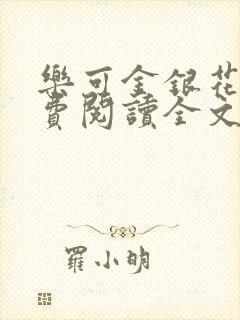 樂可金銀花
費閱讀全文
羅小明